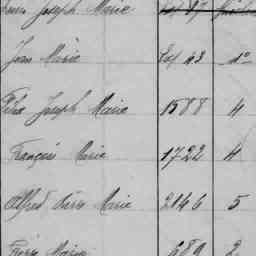 Joseph Marie
Jean Marie 43 1°
Joseph Marie 1588 4
François Marie 1722 4
Alfred Pierre Marie 2166 5
Marie 689 2